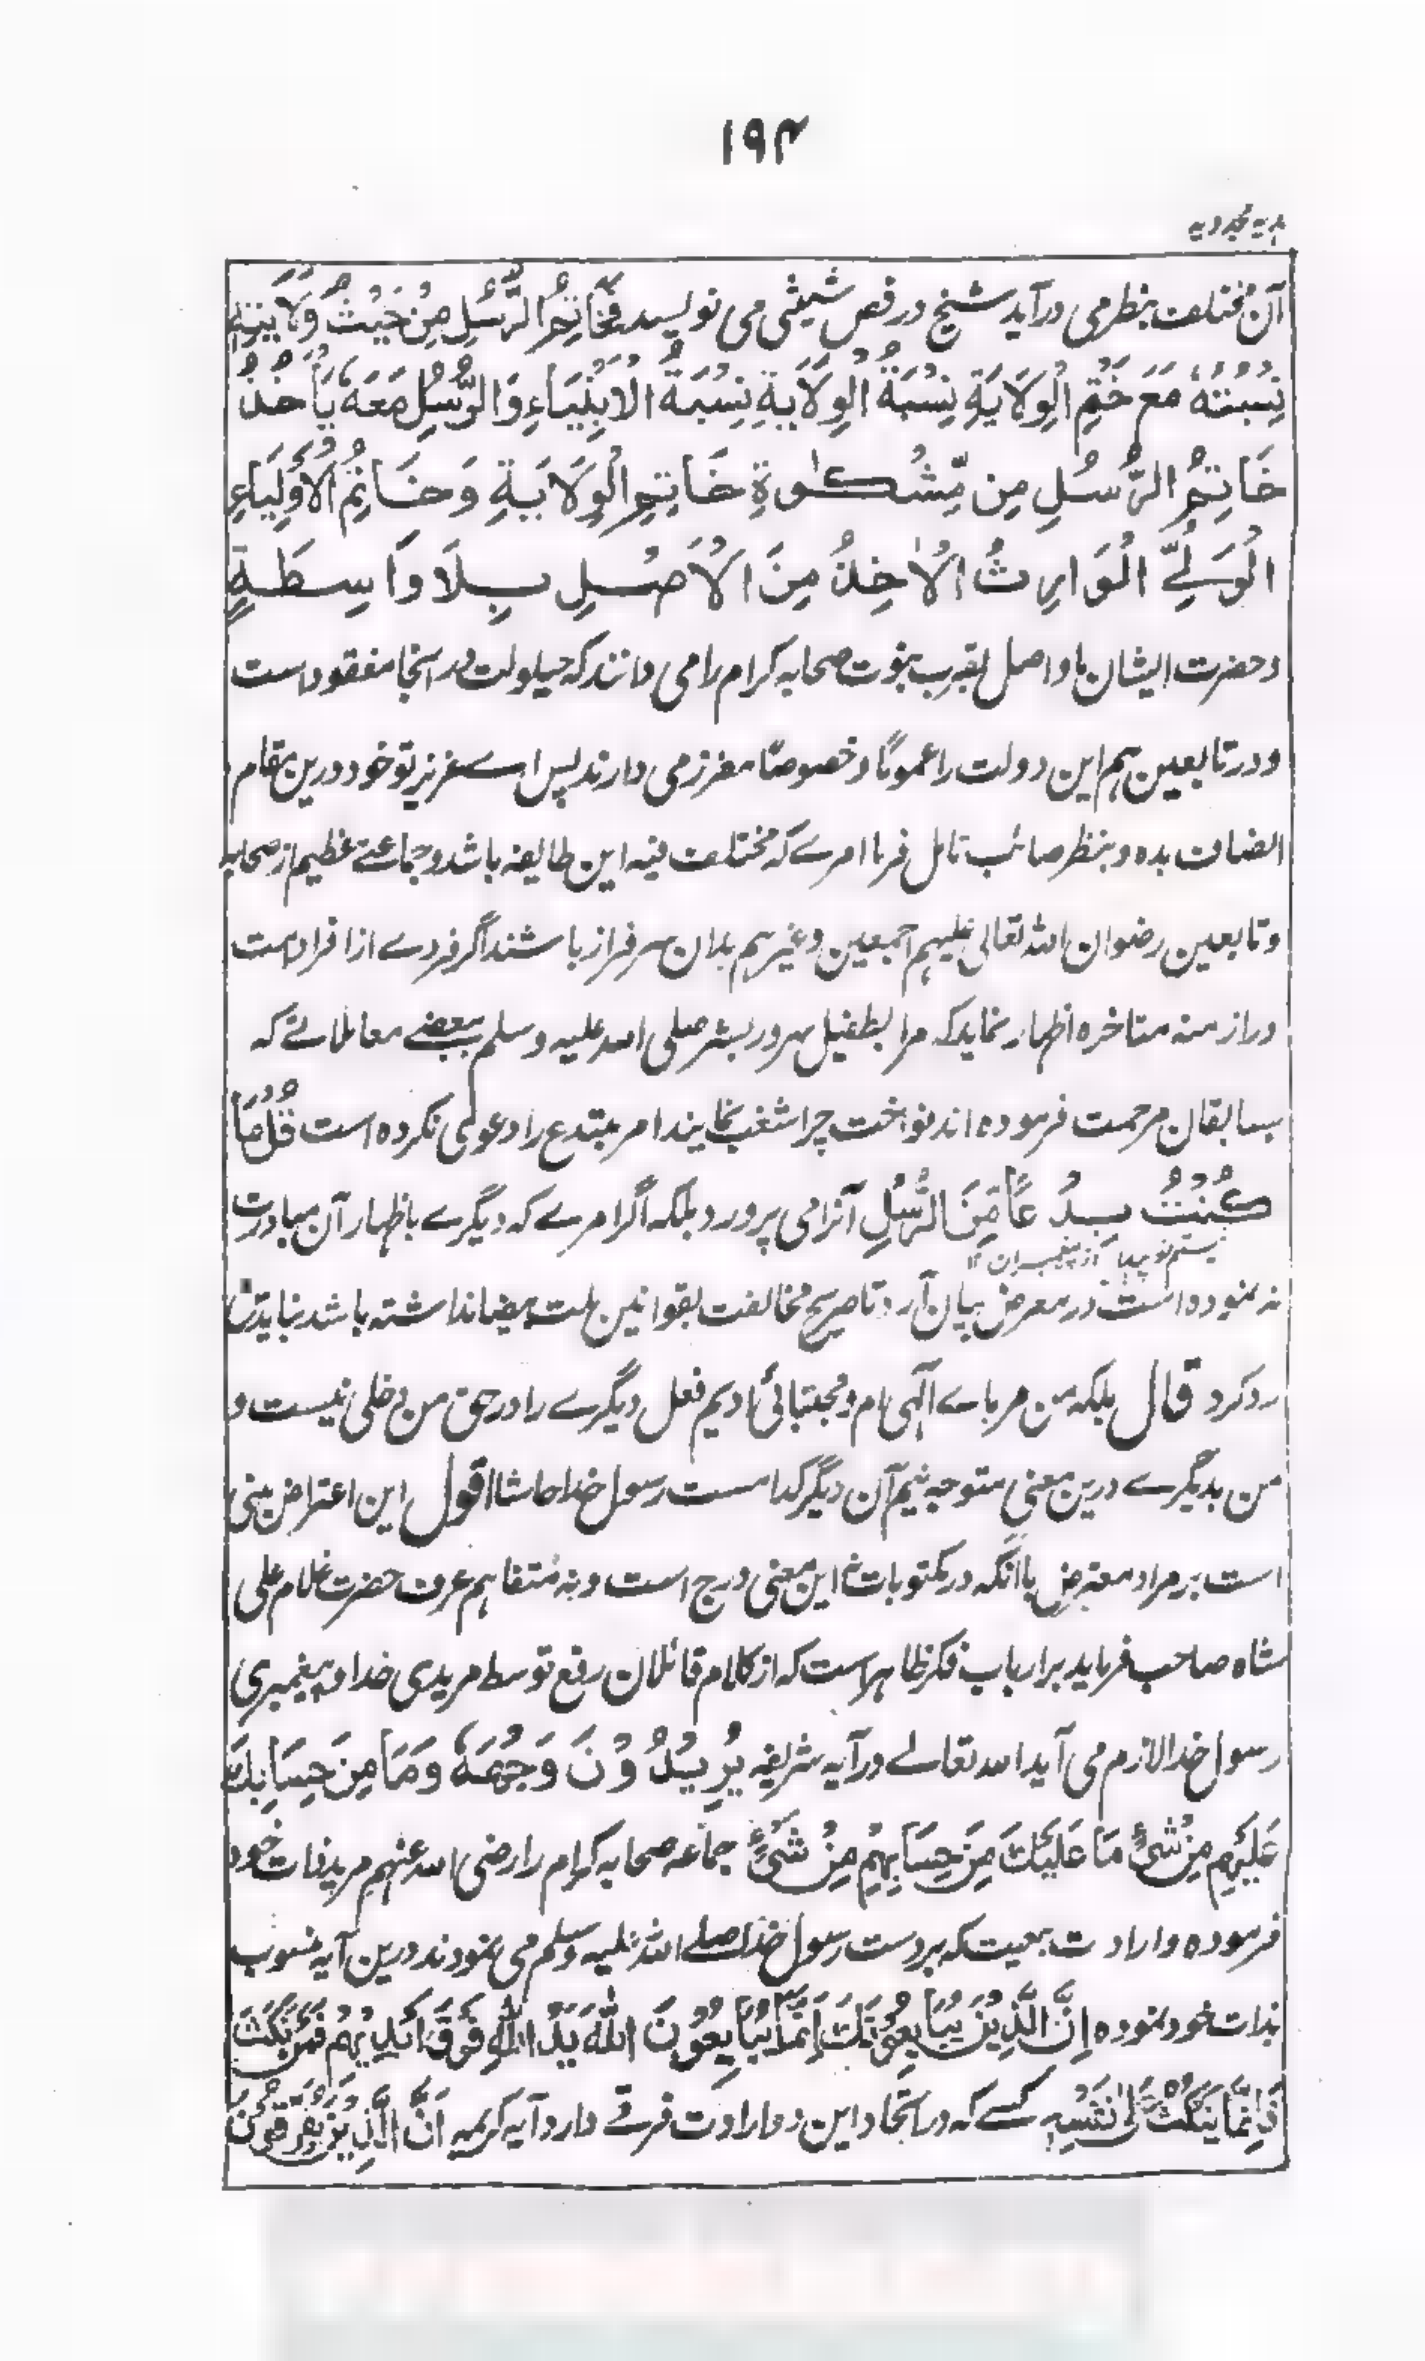 ۱۹۴
ہدیہ مجددیہ
آن مختلف بنظر می درآید شیخ در فص شیثی می نویسد فَخَاتِمُ الرُّسُلِ مِنْ حَيْثُ وَلَايَتِهٖ
نِسْبَتُهٗ مَعَ خَتْمِ الْوِلَايَةِ نِسْبَةُ الْوِلَايَةِ نِسْبَةُ الْاَنْبِيَاءِ وَالرُّسُلِ مَعَهٗ يَاْخُذُ
خَاتِمُ الرُّسُلِ مِن مِّشْكٰوةِ خَاتِمِ الْوِلَايَةِ وَخَاتِمُ الْاَوْلِيَاءِ
الْوَلِيُّ الْوَارِثُ الْاٰخِذُ مِنَ الْاَصْلِ بِلَا وَاسِطَةٍ
وحضرت ایشان ما واصل بقرب نبوت صحابه کرام را می دانند که حیلولت در اینجا مفقود است
و در تابعین هم این دولت را عموماً و خصوصاً معزز می دارند پس اے عزیز تو خود درین مقام
انصاف بده و بنظر صائب تامل فرما امرے که مختلف فیه این طایفه باشد و جماعتے عظیم از صحابه
و تابعین رضوان الله تعالی علیهم اجمعین و غیرهم بدان سرفراز باشند اگر فردے از افراد امت
در ازمنه متاخره اظهار نماید که مرا بطفیل سرور بشر صلی الله علیه وسلم ببعضے معاملاتے که
بسابقان مرحمت فرموده اند نواخت چرا شغب نمایند امر مبتدع را دعوی نکرده است قُلْ مَا
كُنْتُ بِدْعًا مِّنَ الرُّسُلِ آنرا می پرورد بلکه اگر امرے که دیگرے باظهار آن مبادرت
نیستم نو پیدا از پیغمبران ۱۲
نه نموده است در معرض بیان آرد تا صریح مخالفت بقوانین ملت بیضا نداشته باشد نباید
رد کرد قال بلکه من مرباے الٰهی ام و مجتبائی ادیم فعل دیگرے را در حق من دخلی نیست و
من بدیگرے درین معنی متوجه نیم آن دیگر کدامست رسول خدا حاشا اقول این اعتراض مبنی
است بر مراد معترض باآنکه در مکتوبات نه این معنی درج است و نه متفاهم عرف حضرت غلام علی
شاه صاحب فرماید بر ارباب فکر ظاهر است که از کلام قائلان رفع توسط مریدی خدا و پیغمبری
رسول خدا لازم می آید الله تعالے در آیه شریفه يُرِيْدُوْنَ وَجْهَهٗ وَمَا مِنْ حِسَابِكَ
عَلَيْهِمْ مِنْ شَيْءٍ مَا عَلَيْكَ مِنْ حِسَابِهِمْ مِنْ شَيْءٍ جماعه صحابه کرام را رضی الله عنهم مرید ذات خود
فرموده و ارادت بیعت که بر دست رسول خدا صلے الله علیه وسلم می نمودند درین آیه منسوب
بذات خود نموده اِنَّ الَّذِيْنَ يُبَايِعُوْنَكَ اِنَّمَا يُبَايِعُوْنَ اللّٰهَ يَدُ اللّٰهِ فَوْقَ اَيْدِيْهِمْ فَمَنْ نَكَثَ
فَاِنَّمَا يَنْكُثُ عَلٰى نَفْسِهٖ کسے که در اتحاد این دو ارادت فرقے دارد آیه کریمه اَنَّ الَّذِيْنَ يُفَرِّقُوْنَ